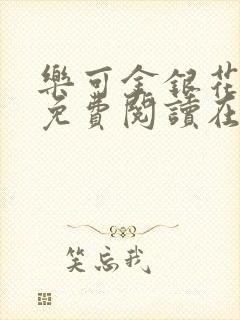 樂可金銀花
免費閱讀在
笑忘我